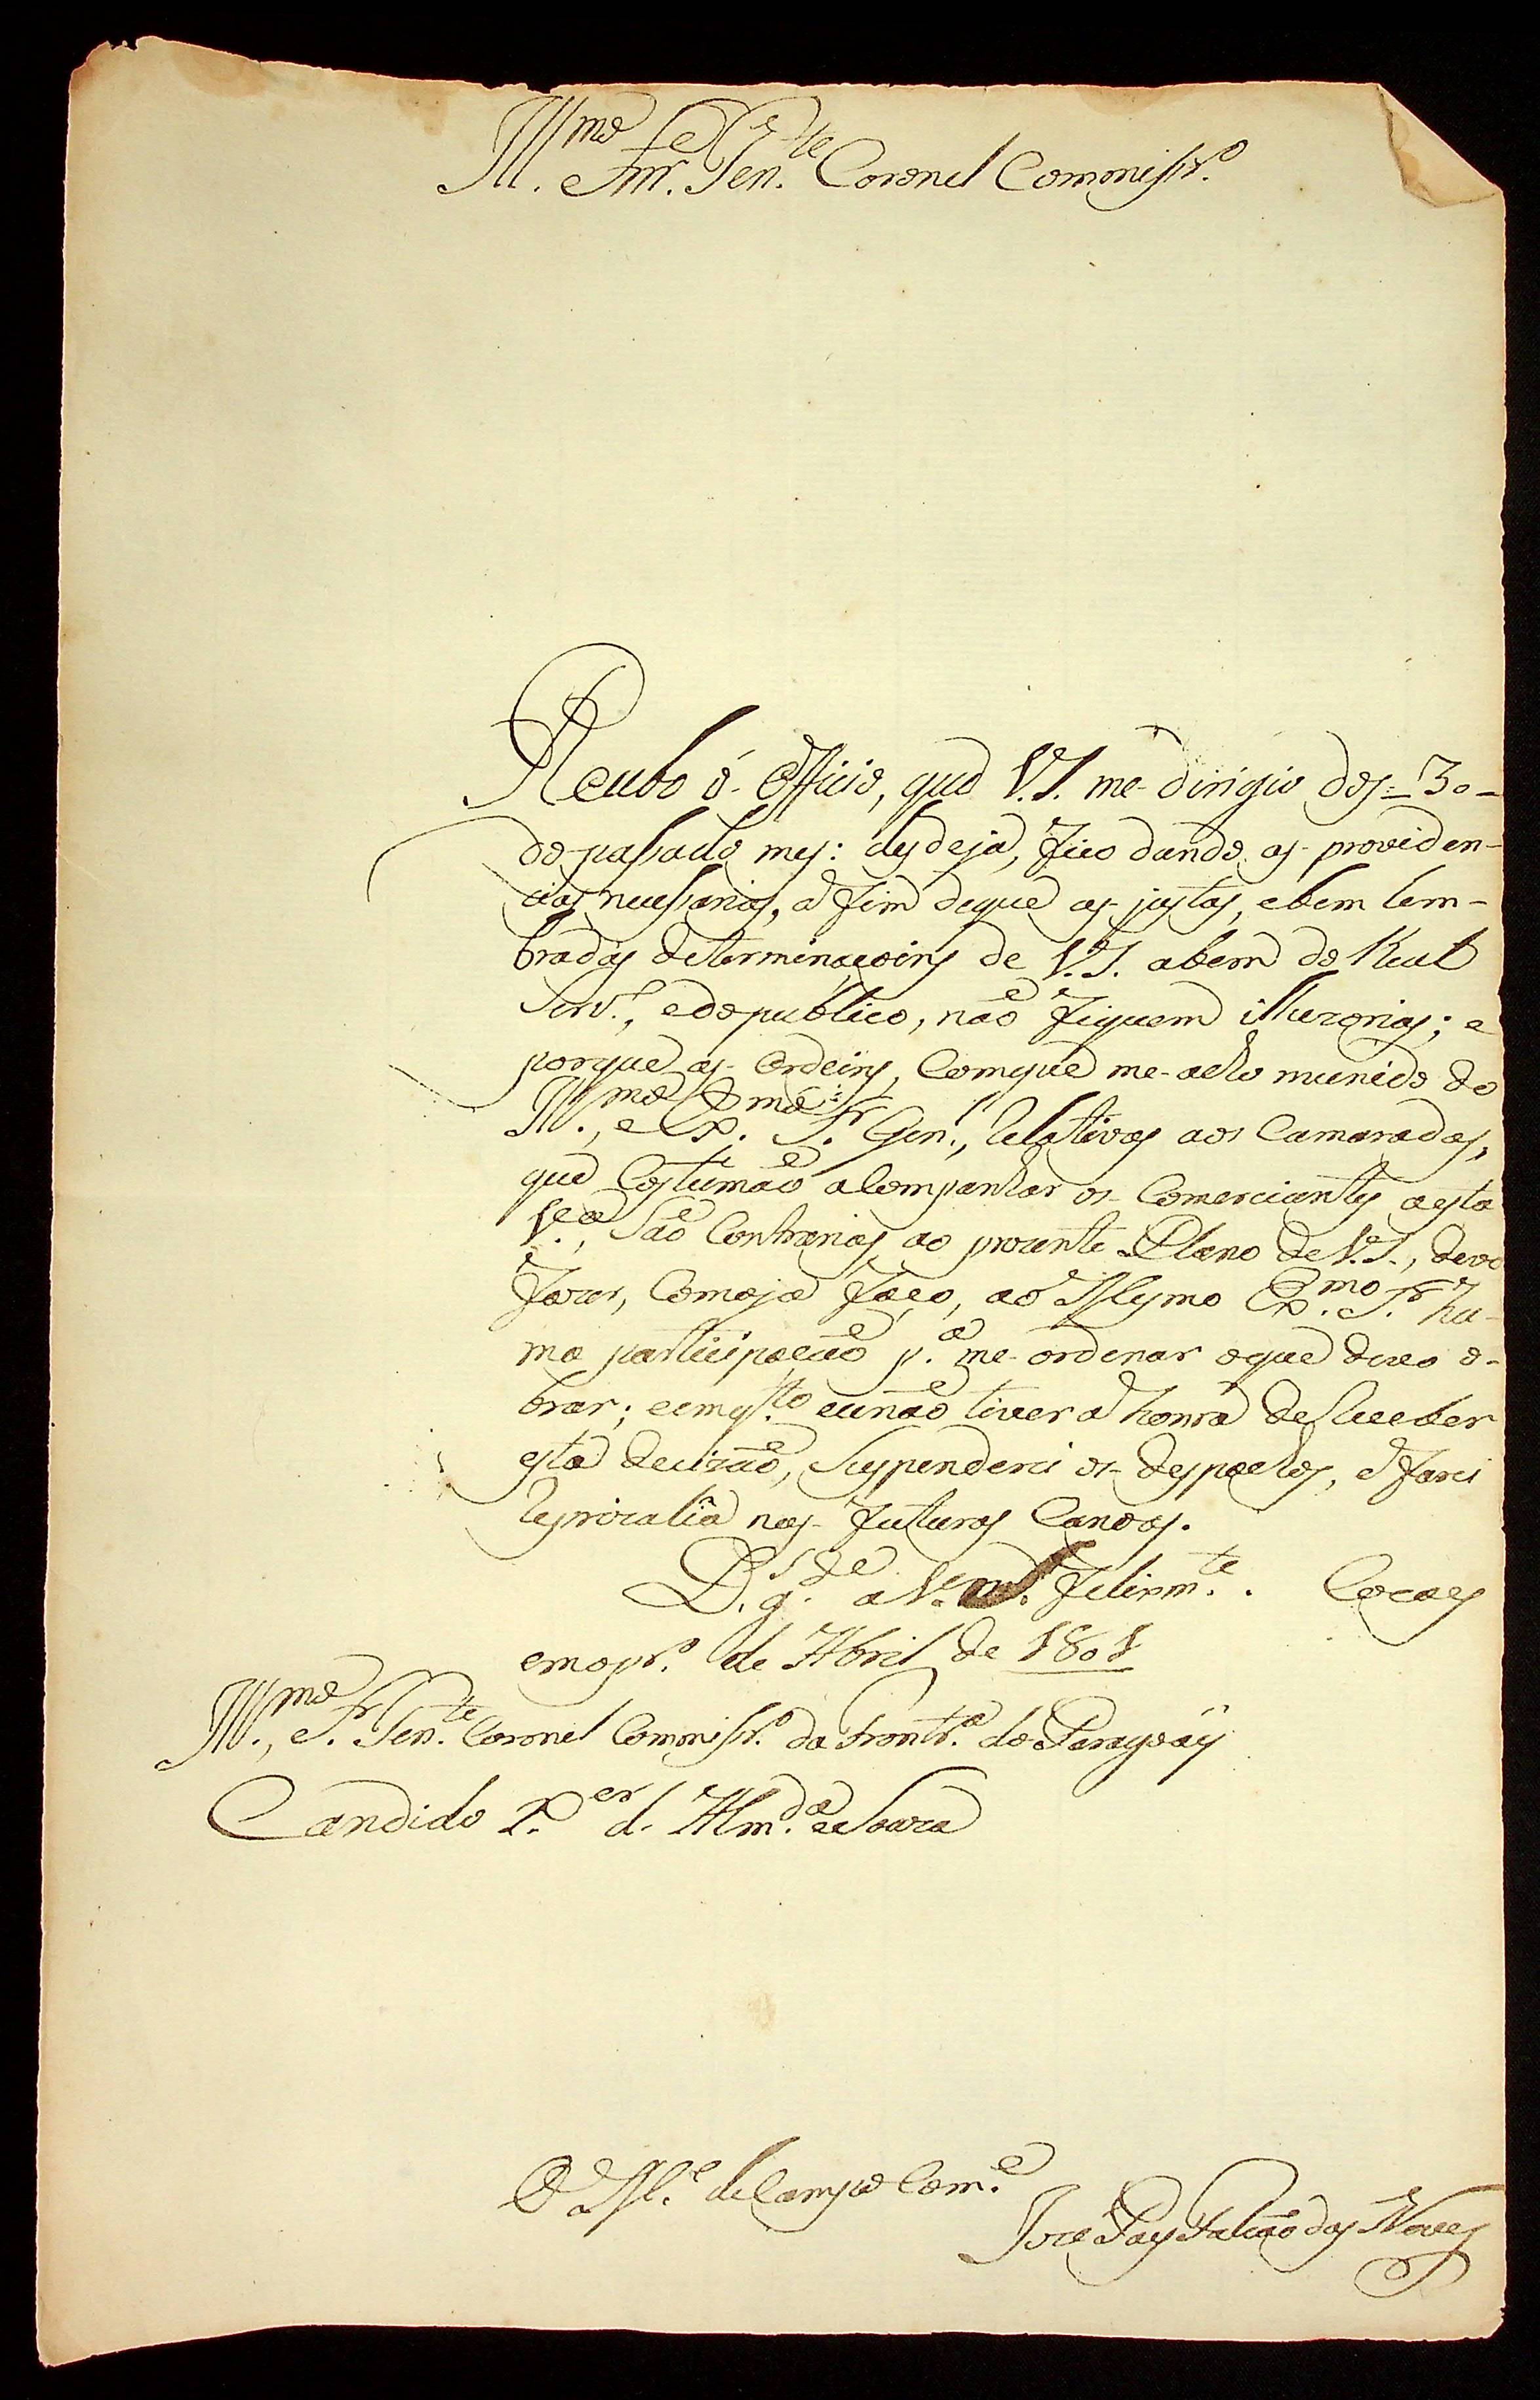 Ill.mo Snr. Ten.te Coronel Commissr.o
Recebo o Officio, que V.S. me dirigio dos 30
do passado mes: desdeja, fico dando as providen-
cias necessarias, a fim deque as justas, e bem lem-
bradas determinaçoins de V.S. abem do Real
Serv.º, edopublico, não fiquem illuzorias; e
porque as Ordeins, Comque me-acho munido do
Ill.mo, e Ex.mo S.r Gen.l, relativas aos Camaradas,
que Costumão aCompanhar os Comerciantes aesta
V.ª, São Contrarias ao prezente Plano de V.S., devo
fazer, Comoja faço, ao Mesmo Ex.mo S.r hu-
ma participação p.ª me ordenar oque devo o-
brar; eemq.to eunão tiver a honra de receber
esta decizão, Suspenderei os despachos, e farei
reprizalia nas futuras Canoas.
D.s g.de a V.S. felizm.te. Cocaes
emopr.º de Abril de 1801
Ill.mo, S.r Ten.te Coronel Commissr.º da Front.ra do Paragoáy
Candido X.er d. Alm.da e Souza
O M.e de Campo Com.e
Joze Paes Falcão das Neves